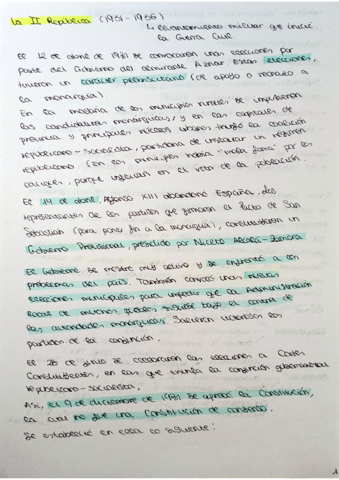 La II República (1931 - 1936)
↳ levantamiento militar que inició
la Guerra Civil
El 12 de abril de 1931 se convocaron unas elecciones por
parte del Gobierno del almirante Aznar. Estas elecciones,
tuvieron un carácter plebiscitario (de apoyo o rechazo a
la monarquía)
En la mayoría de los municipios rurales se impusieron
las candidaturas monárquicas, y en las capitales de
provincia y principales núcleos urbanos triunfó la coalición
republicano-socialista, partidaria de instaurar un régimen
republicano (En los municipios había por los
caciques, porque influían en el voto de la población.
El 14 de abril, Alfonso XIII abandonó España, los
representantes de los partidos que firmaron el Pacto de San
Sebastián (para poner fin a la monarquía), constituyeron un
Gobierno Provisional, presidido por Niceto Alcalá-Zamora
El Gobierno se mostró muy activo y se enfrentó a los
problemas del país. También convocó unas nuevas
elecciones municipales para impedir que la Administración
local de muchos pueblos siguiese bajo el control de
las autoridades monárquicas. Salieron victoriosos los
partidos de la conjunción.
El 28 de junio se celebraron las elecciones a Cortes
Constituyentes, en las que triunfó la conjunción gubernamental
republicano-socialista.
Así, el 9 de diciembre de 1931 se aprobó la Constitución,
la cual no fue una Constitución de consenso.
Se estableció en ella lo siguiente: